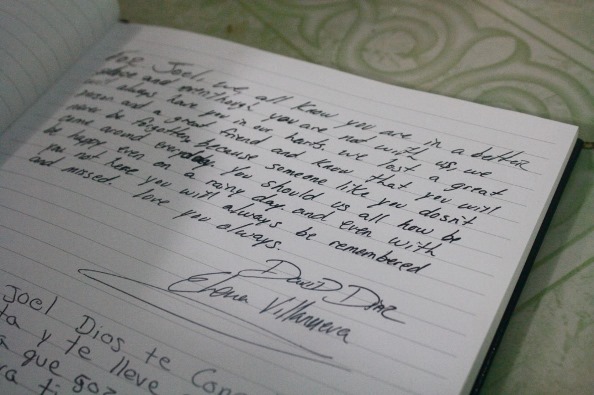 FOR Joel, we all know you are in a better
place and eventhough you are not with us, we
will always have you in our harts. we lost a great
person and a great friend and know that you will
never be forgotten because someone like you doesn't
come around everyday. You should us all how be
be happy even on a rainy day and even with
you not here you will always be remembered
and missed. love you always.
DAVID
Elena Villanueva
Joel Dios te
ta y te lleve
a que goz